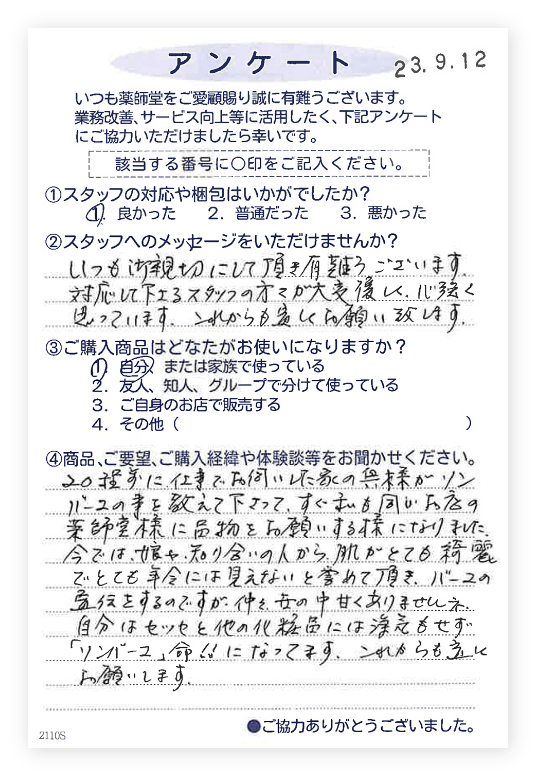 アンケート
23.9.12
いつも薬師堂をご愛顧賜り誠に有難うございます。
業務改善、サービス向上等に活用したく、下記アンケート
にご協力いただけましたら幸いです。
該当する番号に○印をご記入ください。
①スタッフの対応や梱包はいかがでしたか?
1. 良かった 2. 普通だった 3. 悪かった
②スタッフへのメッセージをいただけませんか?
いつも御親切にして頂き有難うございます。
対応して下さるスタッフの方々が大変優しく、心強く
思っています。これからも宜しくお願い致します。
③ご購入商品はどなたがお使いになりますか?
1. 自分、または家族で使っている
2. 友人、知人、グループで分けて使っている
3. ご自身のお店で販売する
4. その他( )
④商品、ご要望、ご購入経緯や体験談等をお聞かせください。
20程前に仕事でお伺いした家の奥様がソン
バーユの事を教えて下さって、すぐ私も同じお店の
薬師堂様に品物をお願いする様になりました。
今では、娘や、知り合いの人から、肌がとても綺麗
でとても年令には見えないと誉めて頂き、バーユの
宣伝をするのですが、仲々、世の中甘くありませんネ。
自分はセッセと他の化粧品には浮気もせず
「ソンバーユ」命!!になってます。これからも宜しく
お願いします。
●ご協力ありがとうございました。
2110S